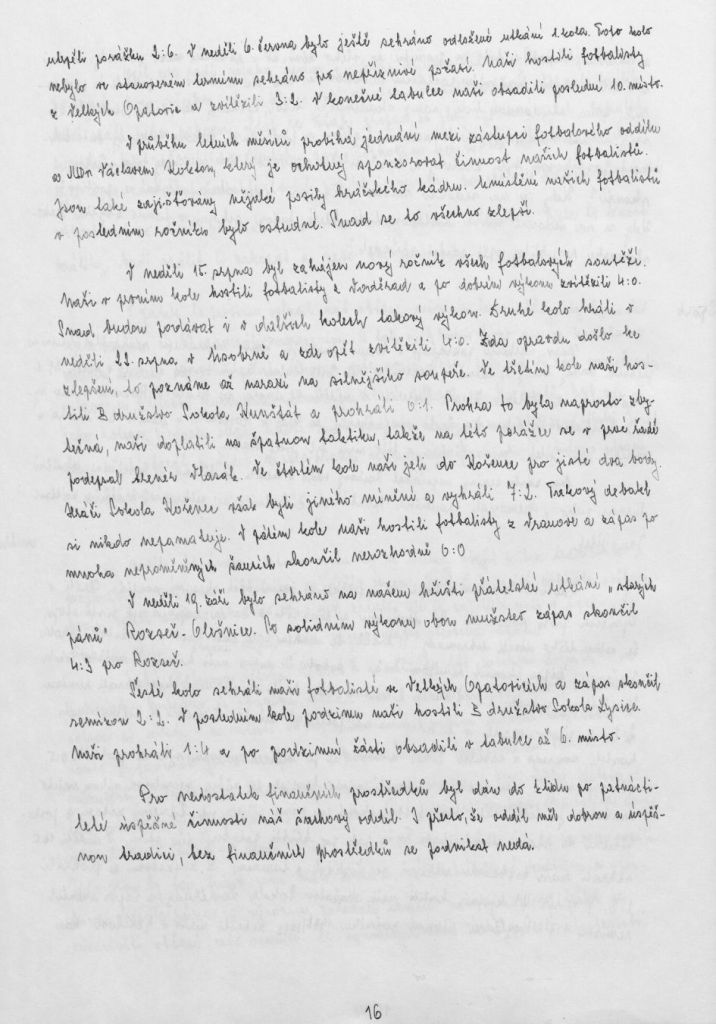 utrpěli porážku 2:6. V neděli 6. června bylo ještě sehráno odložené utkání 1. kola. Toto kolo
nebylo ve stanoveném termínu sehráno pro nepříznivé počasí. Naši hostili fotbalisty
z Velkých Opatovic a zvítězili 3:2. V konečné tabulce naši obsadili poslední 10. místo.
V průběhu letních měsíců probíhá jednání mezi zástupci fotbalového oddílu
a MDr. Václavem, který je ochotný sponzorovat činnost našich fotbalistů.
Jsou také zajišťovány nějaké posily hráčského kádru. Umístění našich fotbalistů
v posledním ročníku bylo ostudné. Snad se to všechno zlepší.
V neděli 15. srpna byl zahájen nový ročník všech fotbalových soutěží.
Naši v prvním kole hostili fotbalisty z Voděrad a po dobrém výkonu zvítězili 4:0.
Snad budou podávat i v dalších kolech takový výkon. Druhé kolo hráli v
neděli 22. srpna v Úsobrně a zde opět zvítězili 4:0. Zda opravdu došlo ke
zlepšení, to poznáme až narazí na silnějšího soupeře. Ve třetím kole naši hos-
tili B družstvo Sokola Kunštát a prohráli 0:1. Prohra to byla naprosto zby-
tečná, naši doplatili na špatnou taktiku, takže na této porážce se v prvé řadě
podepsal trenér Vlasák. Ve čtvrtém kole naši jeli do Kořence pro jisté dva body.
Hráči Sokola Kořenec však byli jiného mínění a vyhráli 7:2. Takový debakl
si nikdo nepamatuje. V pátém kole naši hostili fotbalisty z Vranové a zápas po
mnoha neproměněných šancích skončil nerozhodně 0:0
V neděli 19. září bylo sehráno na našem hřišti přátelské utkání „starých
pánů" Rozseč - Olešnice. Po solidním výkonu obou mužstev zápas skončil
4:3 pro Rozseč.
Šesté kolo sehráli naši fotbalisté ve Velkých Opatovicích a zápas skončil
remízou 2:2. V posledním kole podzimu naši hostili B družstvo Sokola Lysice.
Naši prohráli 1:4 a po podzimní části obsadili v tabulce až 6. místo.
Pro nedostatek finančních prostředků byl dán do klidu po patnácti-
leté úspěšné činnosti náš šachový oddíl. I přesto, že oddíl měl dobrou a úspěš-
nou tradici, bez finančních prostředků se podnikat nedá.
16